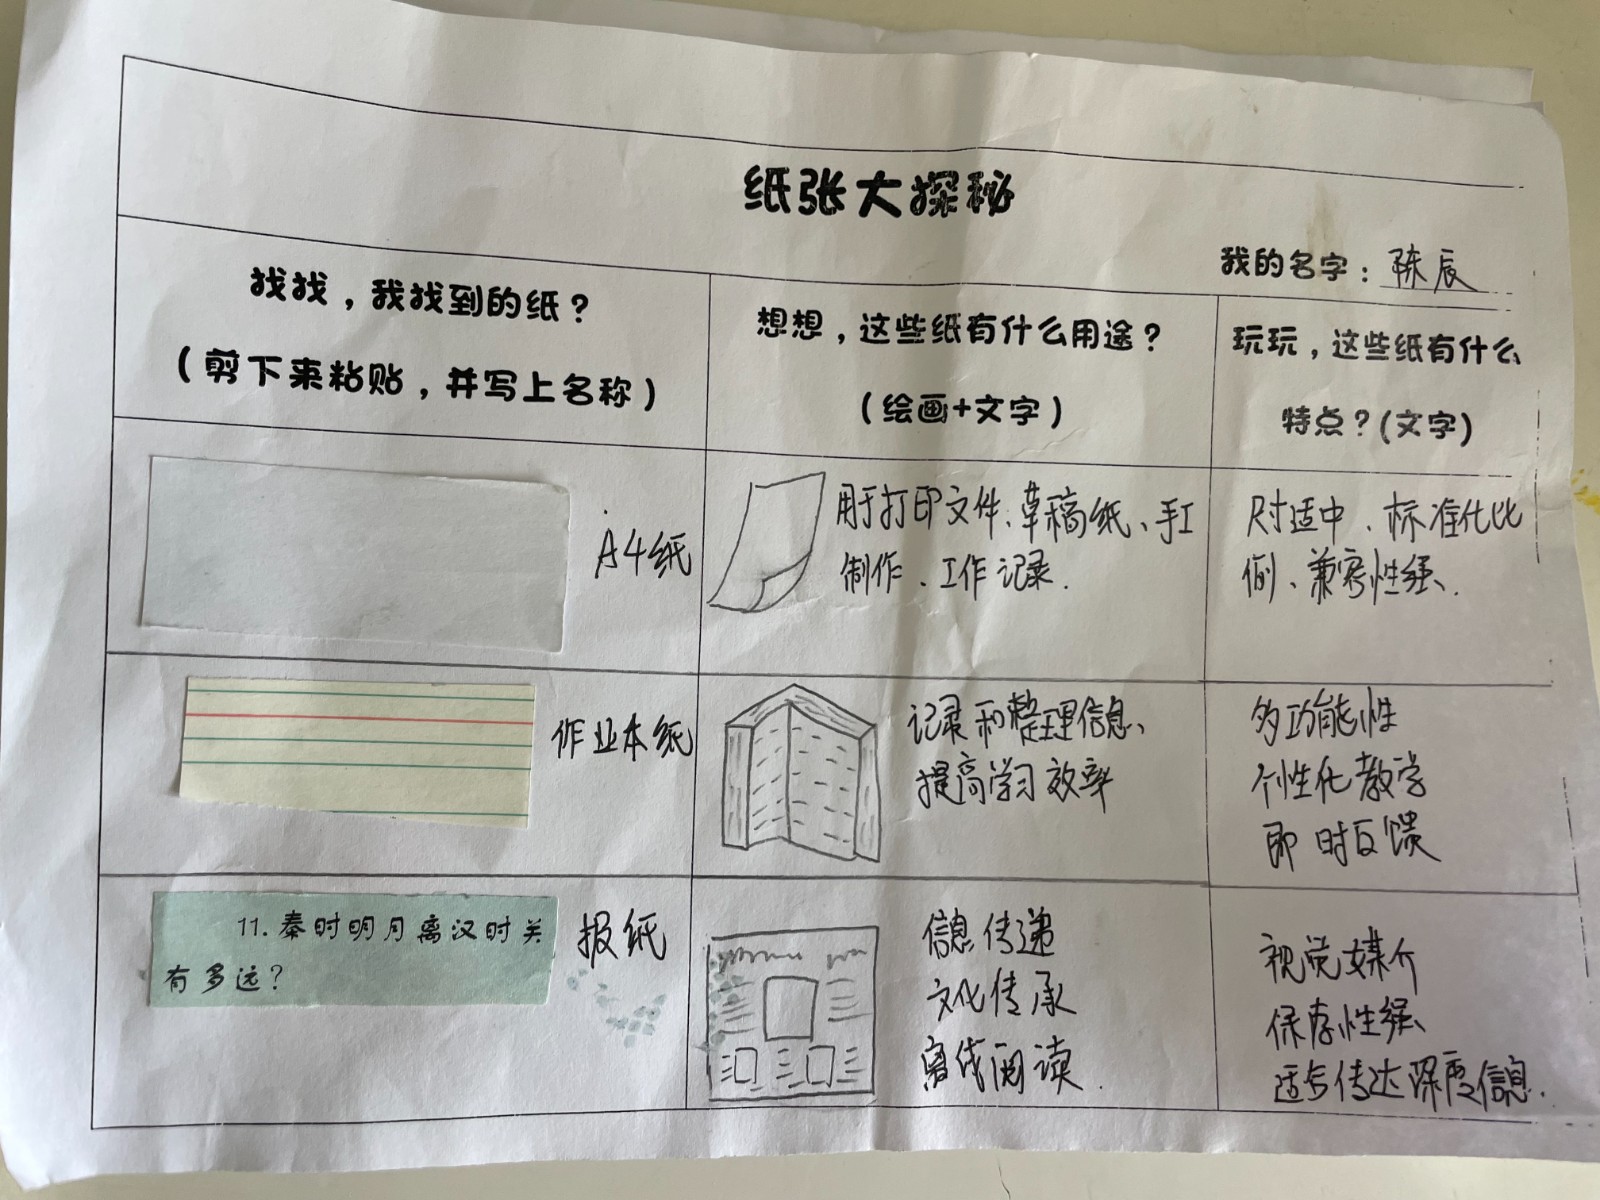 纸张大探秘
我的名字：陈辰
找找，我找到的纸？
（剪下来粘贴，并写上名称）
想想，这些纸有什么用途？
（绘画+文字）
玩玩，这些纸有什么
特点？（文字）
A4纸
用于打印文件、草稿纸、手工
制作、工作记录.
尺寸适中、标准化比
例、兼容性强、
作业本纸
记录和整理信息、
提高学习效率
多功能性
个性化教学
即时反馈
11.秦时明月离汉时关
有多远？
报纸
信息传递
文化传承
离线阅读.
视觉媒介
保存性强、
适合传达深度信息.